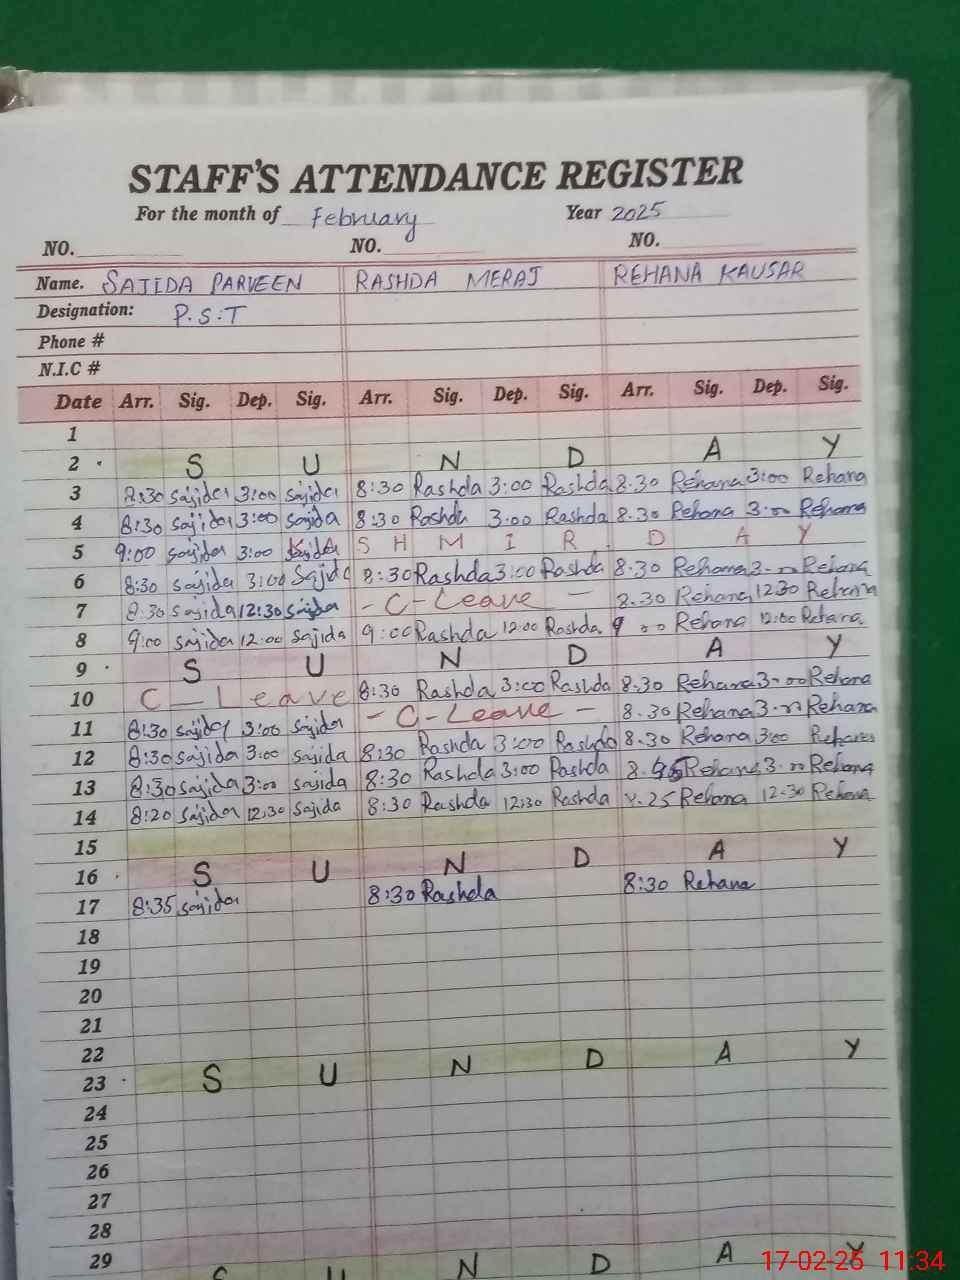 STAFF'S ATTENDANCE REGISTER
For the month of February Year 2025
NO. NO. NO.
Name. SAJIDA PARVEEN RASHDA MERAJ REHANA KAUSAR
Designation: P.S.T
Phone #
N.I.C #
Date Arr. Sig. Dep. Sig. Arr. Sig. Dep. Sig. Arr. Sig. Dep. Sig.
1
2 S U N D A Y
3 8:30 sajida 3:00 sajida 8:30 Rashda 3:00 Rashda 8.30 Rehana 3:00 Rehana
4 8:30 sajida 3:00 sajida 8:30 Rashda 3:00 Rashda 8.30 Rehana 3:00 Rehana
5 9:00 sajida 3:00 sajida S H M I R D A Y
6 8:30 sajida 3:00 Sajida 8:30 Rashda 3:00 Rashda 8.30 Rehana 3-00 Rehana
7 8:30 sajida 12:30 sajida - C-Leave - 8.30 Rehana 12:30 Rehana
8 9:00 sajida 12:00 sajida 9:00 Rashda 12:00 Rashda 9 00 Rehana 12:00 Rehana
9 S U N D A Y
10 C - Leave 8:30 Rashda 3:00 Rashda 8.30 Rehana 3-00 Rehana
11 8:30 sajida 3:00 sajida - C-Leave - 8.30 Rehana 3-00 Rehana
12 8:30 sajida 3:00 sajida 8:30 Rashda 3:00 Rashda 8.30 Rehana 3:00 Rehana
13 8:30 sajida 3:00 sajida 8:30 Rashda 3:00 Rashda Rehana 3-00 Rehana
14 8:20 sajida 12:30 sajida 8:30 Rashda 12:30 Rashda Rehana 12:30 Rehana
15
16 S U N D A Y
17 8:35 sajida 8:30 Rashda 8:30 Rehana
18
19
20
21
22
23 S U N D A Y
24
25
26
27
28
29 S U N D A Y
17-02-25 11:34